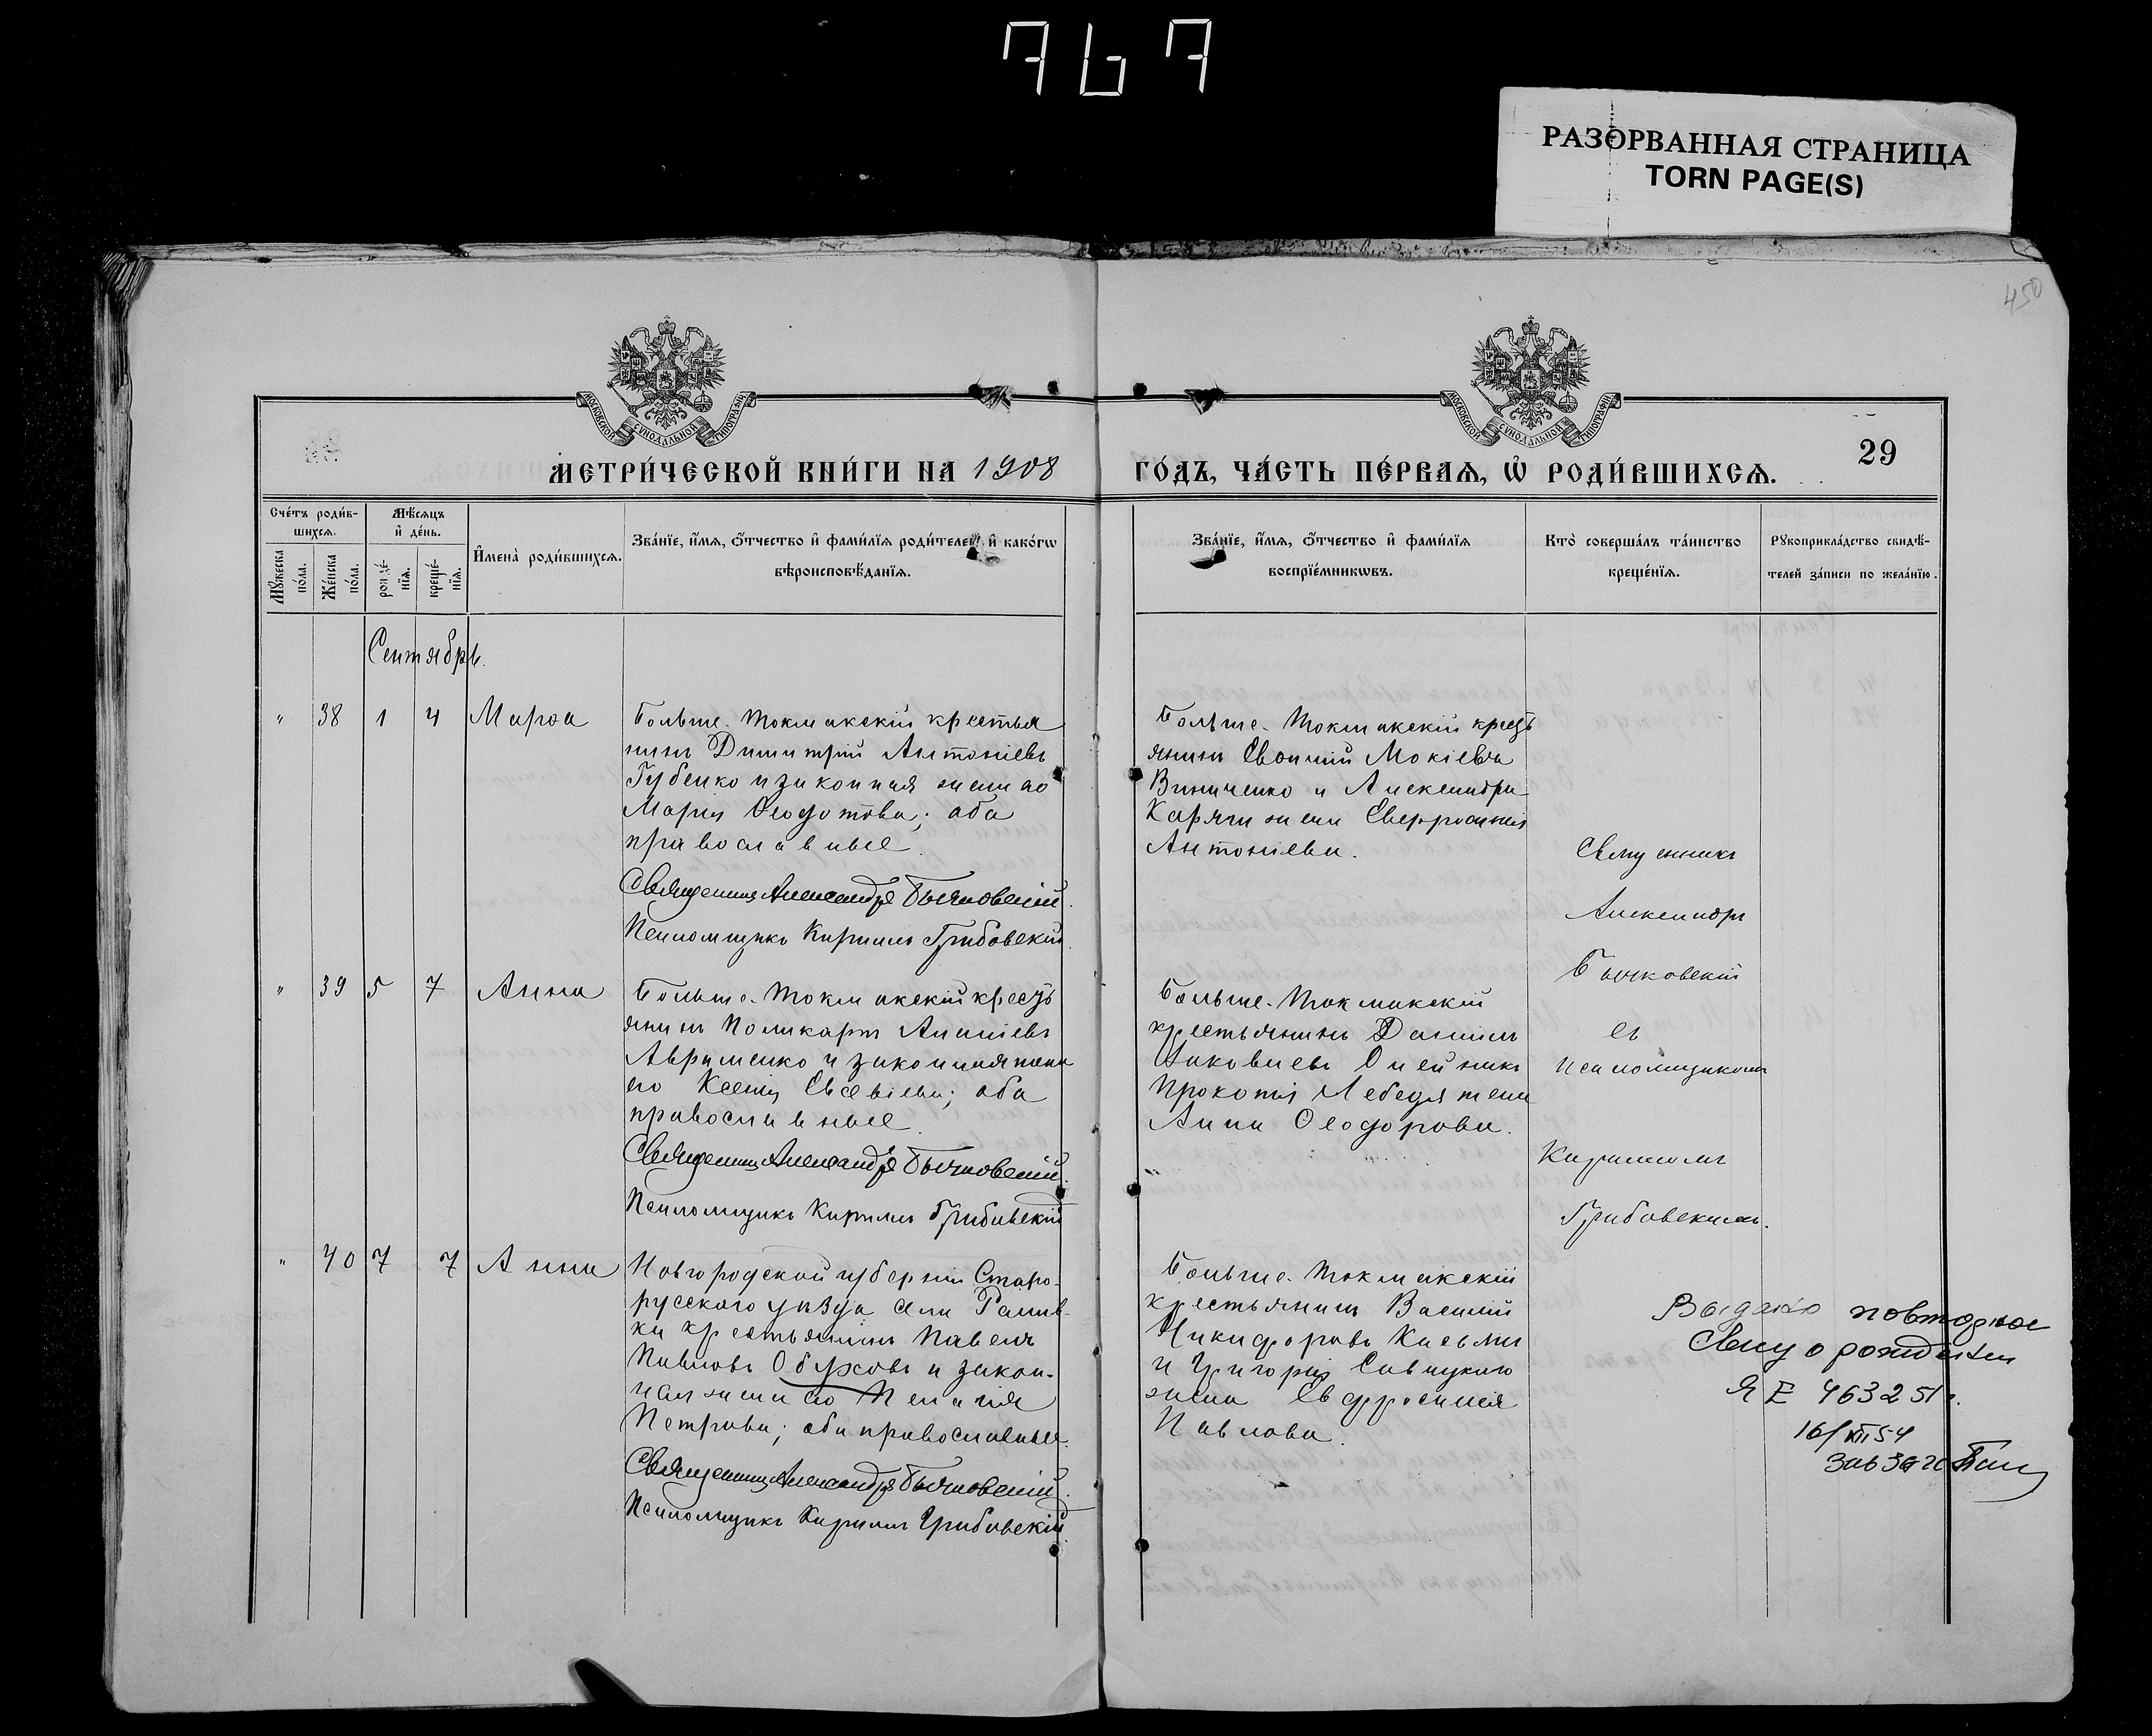 767
РАЗОРВАННАЯ СТРАНИЦА
TORN PAGE(S)
450
МОСКОВСКОЙ СУНОДАЛЬНОЙ ТИПОГРАФІИ
МОСКОВСКОЙ СУНОДАЛЬНОЙ ТИПОГРАФІИ
29
МЕТРИ́ЧЕСКОЙ КНИ́ГИ НА 1908
ГО́ДЪ, ЧА́СТЬ ПЕ́РВАѦ, Ѡ҆ РОДИ́ВШИХСѦ.
Сче́тъ роди́в-
шихсѧ.
Мꙋ́жеска по́ла.
Же́нска по́ла.
Мѣ́сѧцъ
и҆ де́нь.
рожде́-
нїѧ.
креще́-
нїѧ.
И҆мена̀ роди́вшихсѧ.
Зва́нїе, и҆́мѧ, ѻ҆́тчество и҆ фами́лїѧ роди́телей, и҆ како́гѡ
вѣроисповѣ́данїѧ.
Зва́нїе, и҆́мѧ, ѻ҆́тчество и҆ фами́лїѧ
воспрїе́мникѡвъ.
Кто̀ соверша́лъ та́инство
креще́нїѧ.
Рꙋкоприкла́дство свидѣ́-
телей за́писи по жела́нїю.
Сентябрь.
" 38 1 4 Марѳа
Больше-Токмакскій крестья
нинъ Димитрій Антоніевъ
Губенко и законная жена его
Марія Ѳеодотова; оба
православные.
Священникъ Александръ Бычковскій.
Псаломщикъ Кириллъ Грибовскій.
Больше-Токмакскій кресть
янинъ Евѳимій Мокіевъ
Виниченко и Александра
Карягі жена Евфросинія
Антоніева.
Священникъ
Александръ
Бычковскій
съ
псаломщикомъ
Кирилломъ
Грибовскимъ.
" 39 5 7 Анна
Больше-Токмакскій кресть
янинъ Поликарпъ Ананіевъ
Авраменко и законная жена
его Ксенія Евсевіева; оба
православные.
Священникъ Александръ Бычковскій.
Псаломщикъ Кириллъ Грибовскій
Больше-Токмакскій
крестьянинъ Даніилъ
Іаковлевъ Олейникъ
Прокопія Лебедя жена
Анна Ѳеодорова.
" 40 7 7 Анна
Новгородской губерніи Старо-
русского уѣзда села
крестьянинъ Павелъ
Павловъ Обуховъ и закон-
ная жена его Пелагія
Петрова; оба православные.
Священникъ Александръ Бычковскій.
Псаломщикъ Кириллъ Грибовскій
Больше-Токмакскій
крестьянинъ Василій
Никифоровъ Касьма
и Григорія Савицкого
жена Евфросинія
Павлова.
Выдано повторное
Св-у о рождении
ЯЕ 463251
16/XII 54